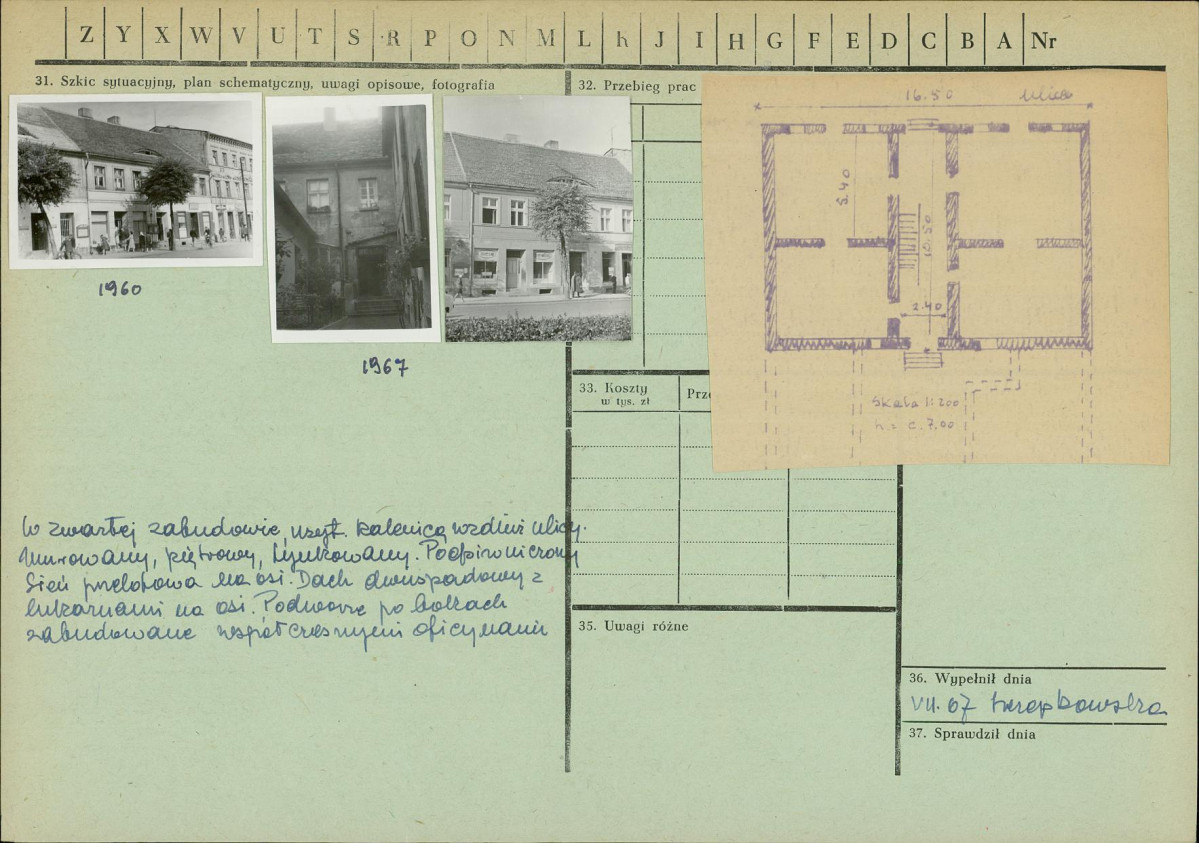 Z Y X W V U T S R P O N M L Ł J I H G F E D C B A Nr
31. Szkic sytuacyjny, plan schematyczny, uwagi opisowe, fotografia
1960
1967
W zwartej zabudowie, usyt. kalenicą wzdłuż ulicy.
Murowany, piętrowy, tynkowany. Podpiwniczony
Sień przelotowa na osi. Dach dwuspadowy z
lukarnami na osi. Podwórze po bokach
zabudowane współczesnymi oficynami
32. Przebieg prac
16.50 Ulica
5.40
10.50
2.40
Skala 1:200
h = c. 7.00
33. Koszty
w tys. zł
35. Uwagi różne
36. Wypełnił dnia
VII. 67
37. Sprawdził dnia